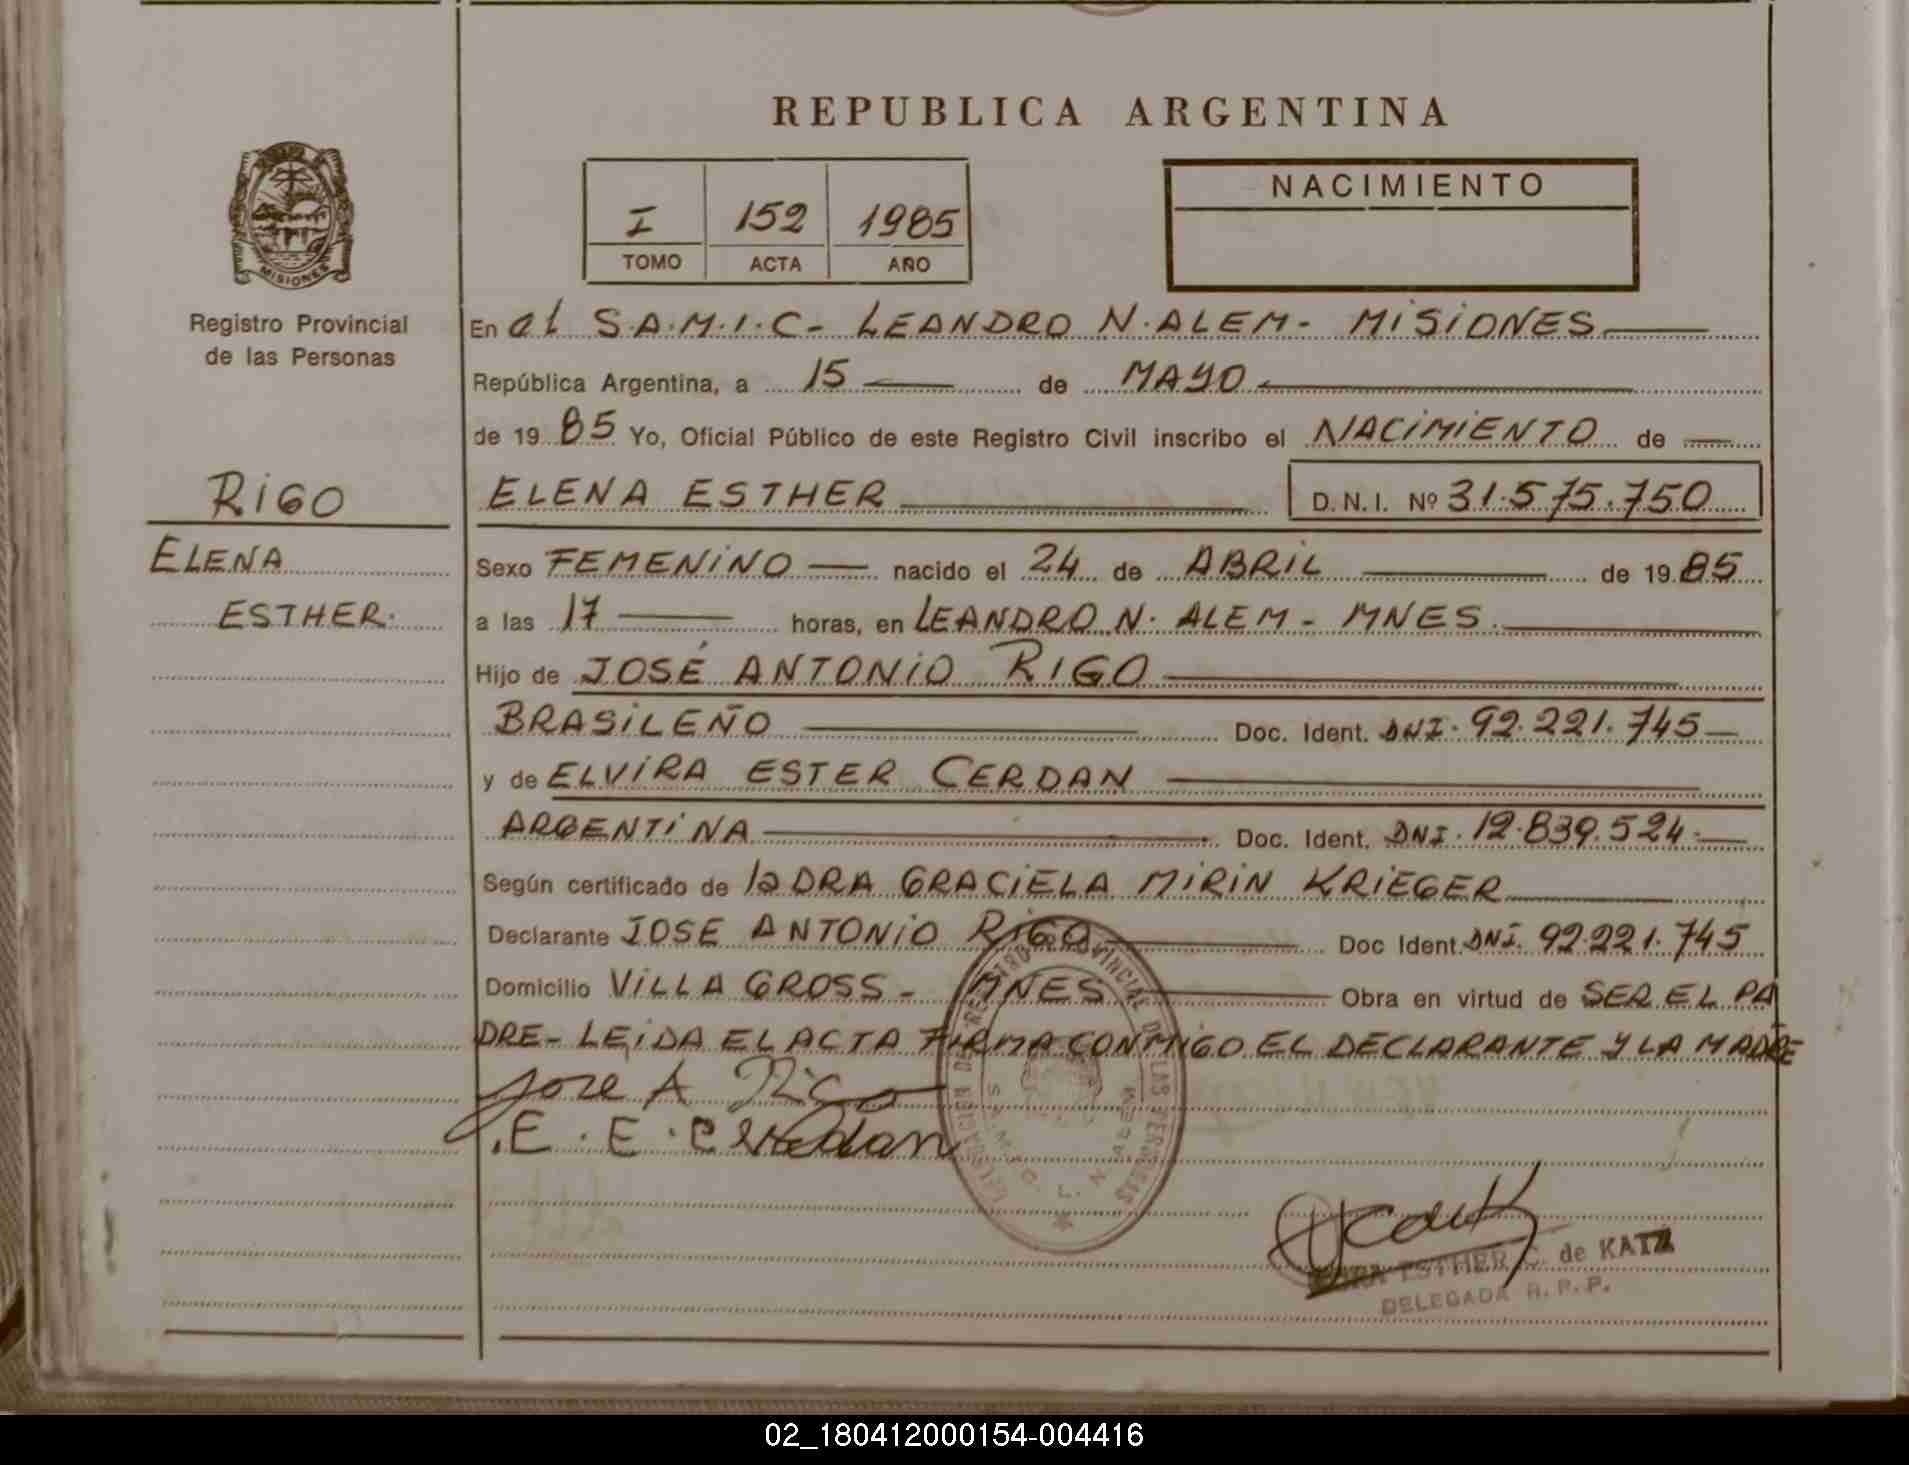 REPUBLICA ARGENTINA
MISIONES
Registro Provincial
de las Personas
I 152 1985
TOMO ACTA AÑO
NACIMIENTO
En el S.A.M.I.C- LEANDRO N. ALEM- MISIONES
República Argentina, a 15 de MAYO
de 19 85 Yo, Oficial Público de este Registro Civil inscribo el NACIMIENTO de
RIGO
ELENA
ESTHER.
ELENA ESTHER D.N.I. Nº 31.575.750
Sexo FEMENINO nacido el 24 de ABRIL de 19 85
a las 17 horas, en LEANDRO N. ALEM - MNES
Hijo de JOSÉ ANTONIO RIGO
BRASILEÑO Doc. Ident. DNI. 92.221.745
y de ELVIRA ESTER CERDAN
ARGENTINA Doc. Ident. DNI. 12.839.524.
Según certificado de la DRA GRACIELA MIRIN KRIEGER
Declarante JOSE ANTONIO RIGO Doc Ident. DNI. 92.221.745
Domicilio VILLA GROSS - MNES Obra en virtud de SER EL PA
DRE- LEIDA EL ACTA FIRMA CONMIGO EL DECLARANTE Y LA MADRE
Jose A Rigo
E. E. Cerdan
REGISTRO PROVINCIAL DE LAS PERSONAS
S.A.M.I.C. L. N. ALEM
ESTHER C. de KATZ
DELEGADA R.P.P.
02_180412000154-004416